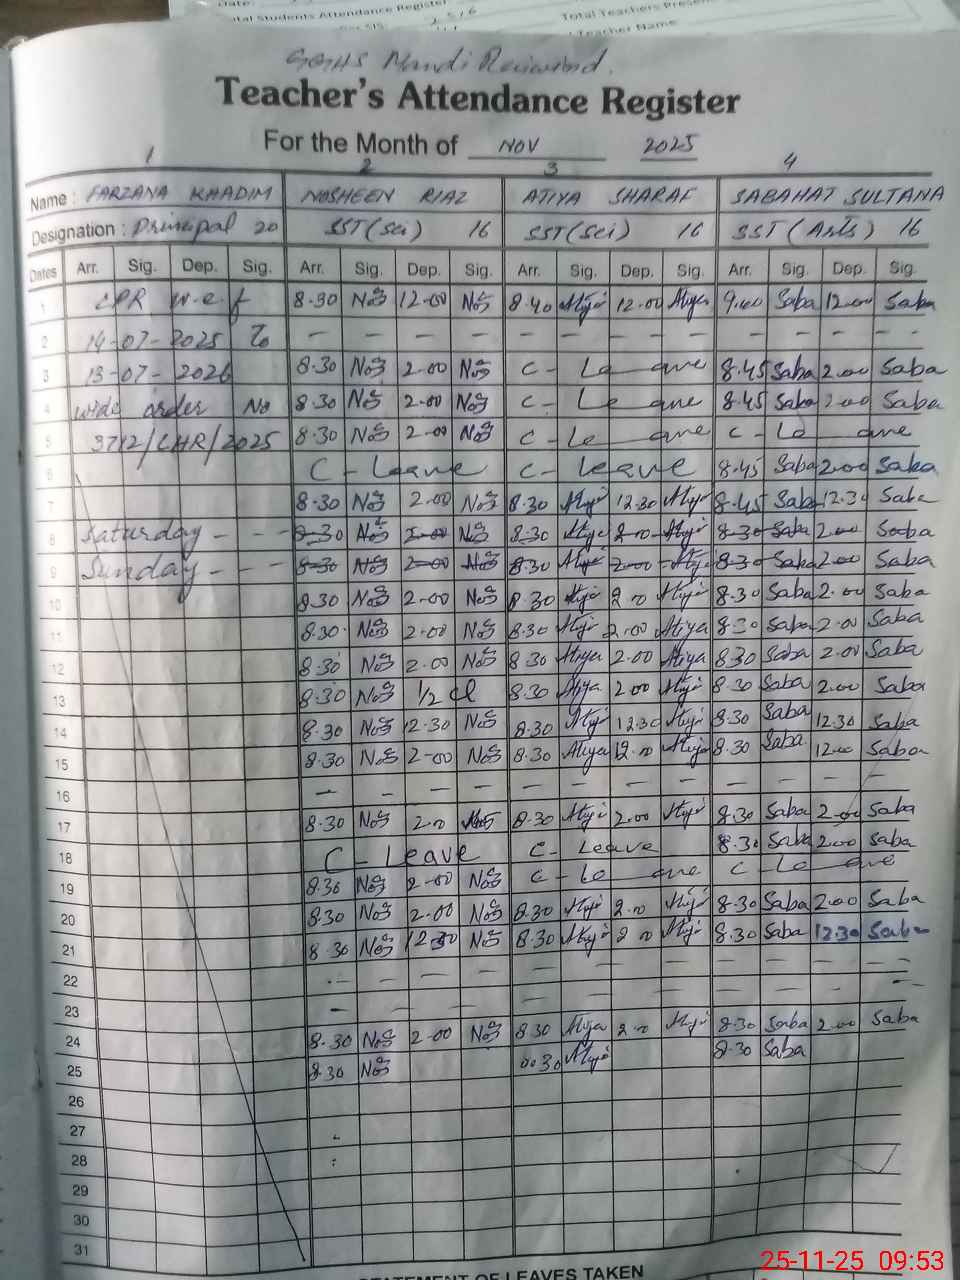 Date:
Total Students Attendance Register
Total Teachers Present
Teacher Name
GGHS Mandi Raiwind.
Teacher's Attendance Register
For the Month of NOV 2025
1 2 3 4
Name : FARZANA KHADIM NOSHEEN RIAZ ATIYA SHARAF SABAHAT SULTANA
Designation : Principal 20 SST (Sci) 16 SST (Sci) 16 SST (Arts) 16
Dates Arr. Sig. Dep. Sig. Arr. Sig. Dep. Sig. Arr. Sig. Dep. Sig. Arr. Sig. Dep. Sig.
1 CPR w.e.f 8.30 Nos 12-00 Nos 8.40 Atiya 12.00 Atiya 9.00 Saba 12.00 Saba
2 14-07-2025 To - - - - - - - - - - - -
3 13-07-2026 8.30 Nos 2-00 Nos C - Leave 8.45 Saba 2.00 Saba
4 wide order No 8.30 Nos 2-00 Nos C - Leave 8.45 Saba 2.00 Saba
5 3712/LHR/2025 8.30 Nos 2-00 Nos C - Leave C - Leave
6 C - Leave C - Leave 8.45 Saba 2.00 Saba
7 8.30 Nos 2.00 Nos 8.30 Atiya 12.30 Atiya 8.45 Saba 12.30 Saba
8 Saturday - - - 8.30 Nos 2-00 Nos 8.30 Atiya 2.00 Atiya 8.30 Saba 2.00 Saba
9 Sunday - - - 8.30 Nos 2-00 Nos 8.30 Atiya 2.00 Atiya 8.30 Saba 2.00 Saba
10 8.30 Nos 2-00 Nos 8.30 Atiya 2.00 Atiya 8.30 Saba 2.00 Saba
11 8.30 Nos 2.00 Nos 8.30 Atiya 2.00 Atiya 8.30 Saba 2.00 Saba
12 8.30 Nos 2.00 Nos 8.30 Atiya 2.00 Atiya 8.30 Saba 2.00 Saba
13 8.30 Nos 1/2 cl 8.30 Atiya 2.00 Atiya 8.30 Saba 2.00 Saba
14 8.30 Nos 12.30 Nos 8.30 Atiya 12.30 Atiya 8.30 Saba 12.30 Saba
15 8.30 Nos 2-00 Nos 8.30 Atiya 12.00 Atiya 8.30 Saba 12.00 Saba
16 - - - - - - - - - - - -
17 8.30 Nos 2.00 Nos 8.30 Atiya 2.00 Atiya 8.30 Saba 2.00 Saba
18 C - Leave C - Leave 8.30 Saba 2.00 Saba
19 8.30 Nos 2-00 Nos C - Leave C - Leave
20 8.30 Nos 2.00 Nos 8.30 Atiya 2.00 Atiya 8.30 Saba 2.00 Saba
21 8.30 Nos 12.30 Nos 8.30 Atiya 2.00 Atiya 8.30 Saba 12.30 Saba
22 - - - - - - - - - - - -
23 - - - - - - - - - - -
24 8.30 Nos 2-00 Nos 8.30 Atiya 2.00 Atiya 8.30 Saba 2.00 Saba
25 8.30 Nos Atiya 8.30 Saba
26
27
28
29
30
31
STATEMENT OF LEAVES TAKEN
25-11-25 09:53